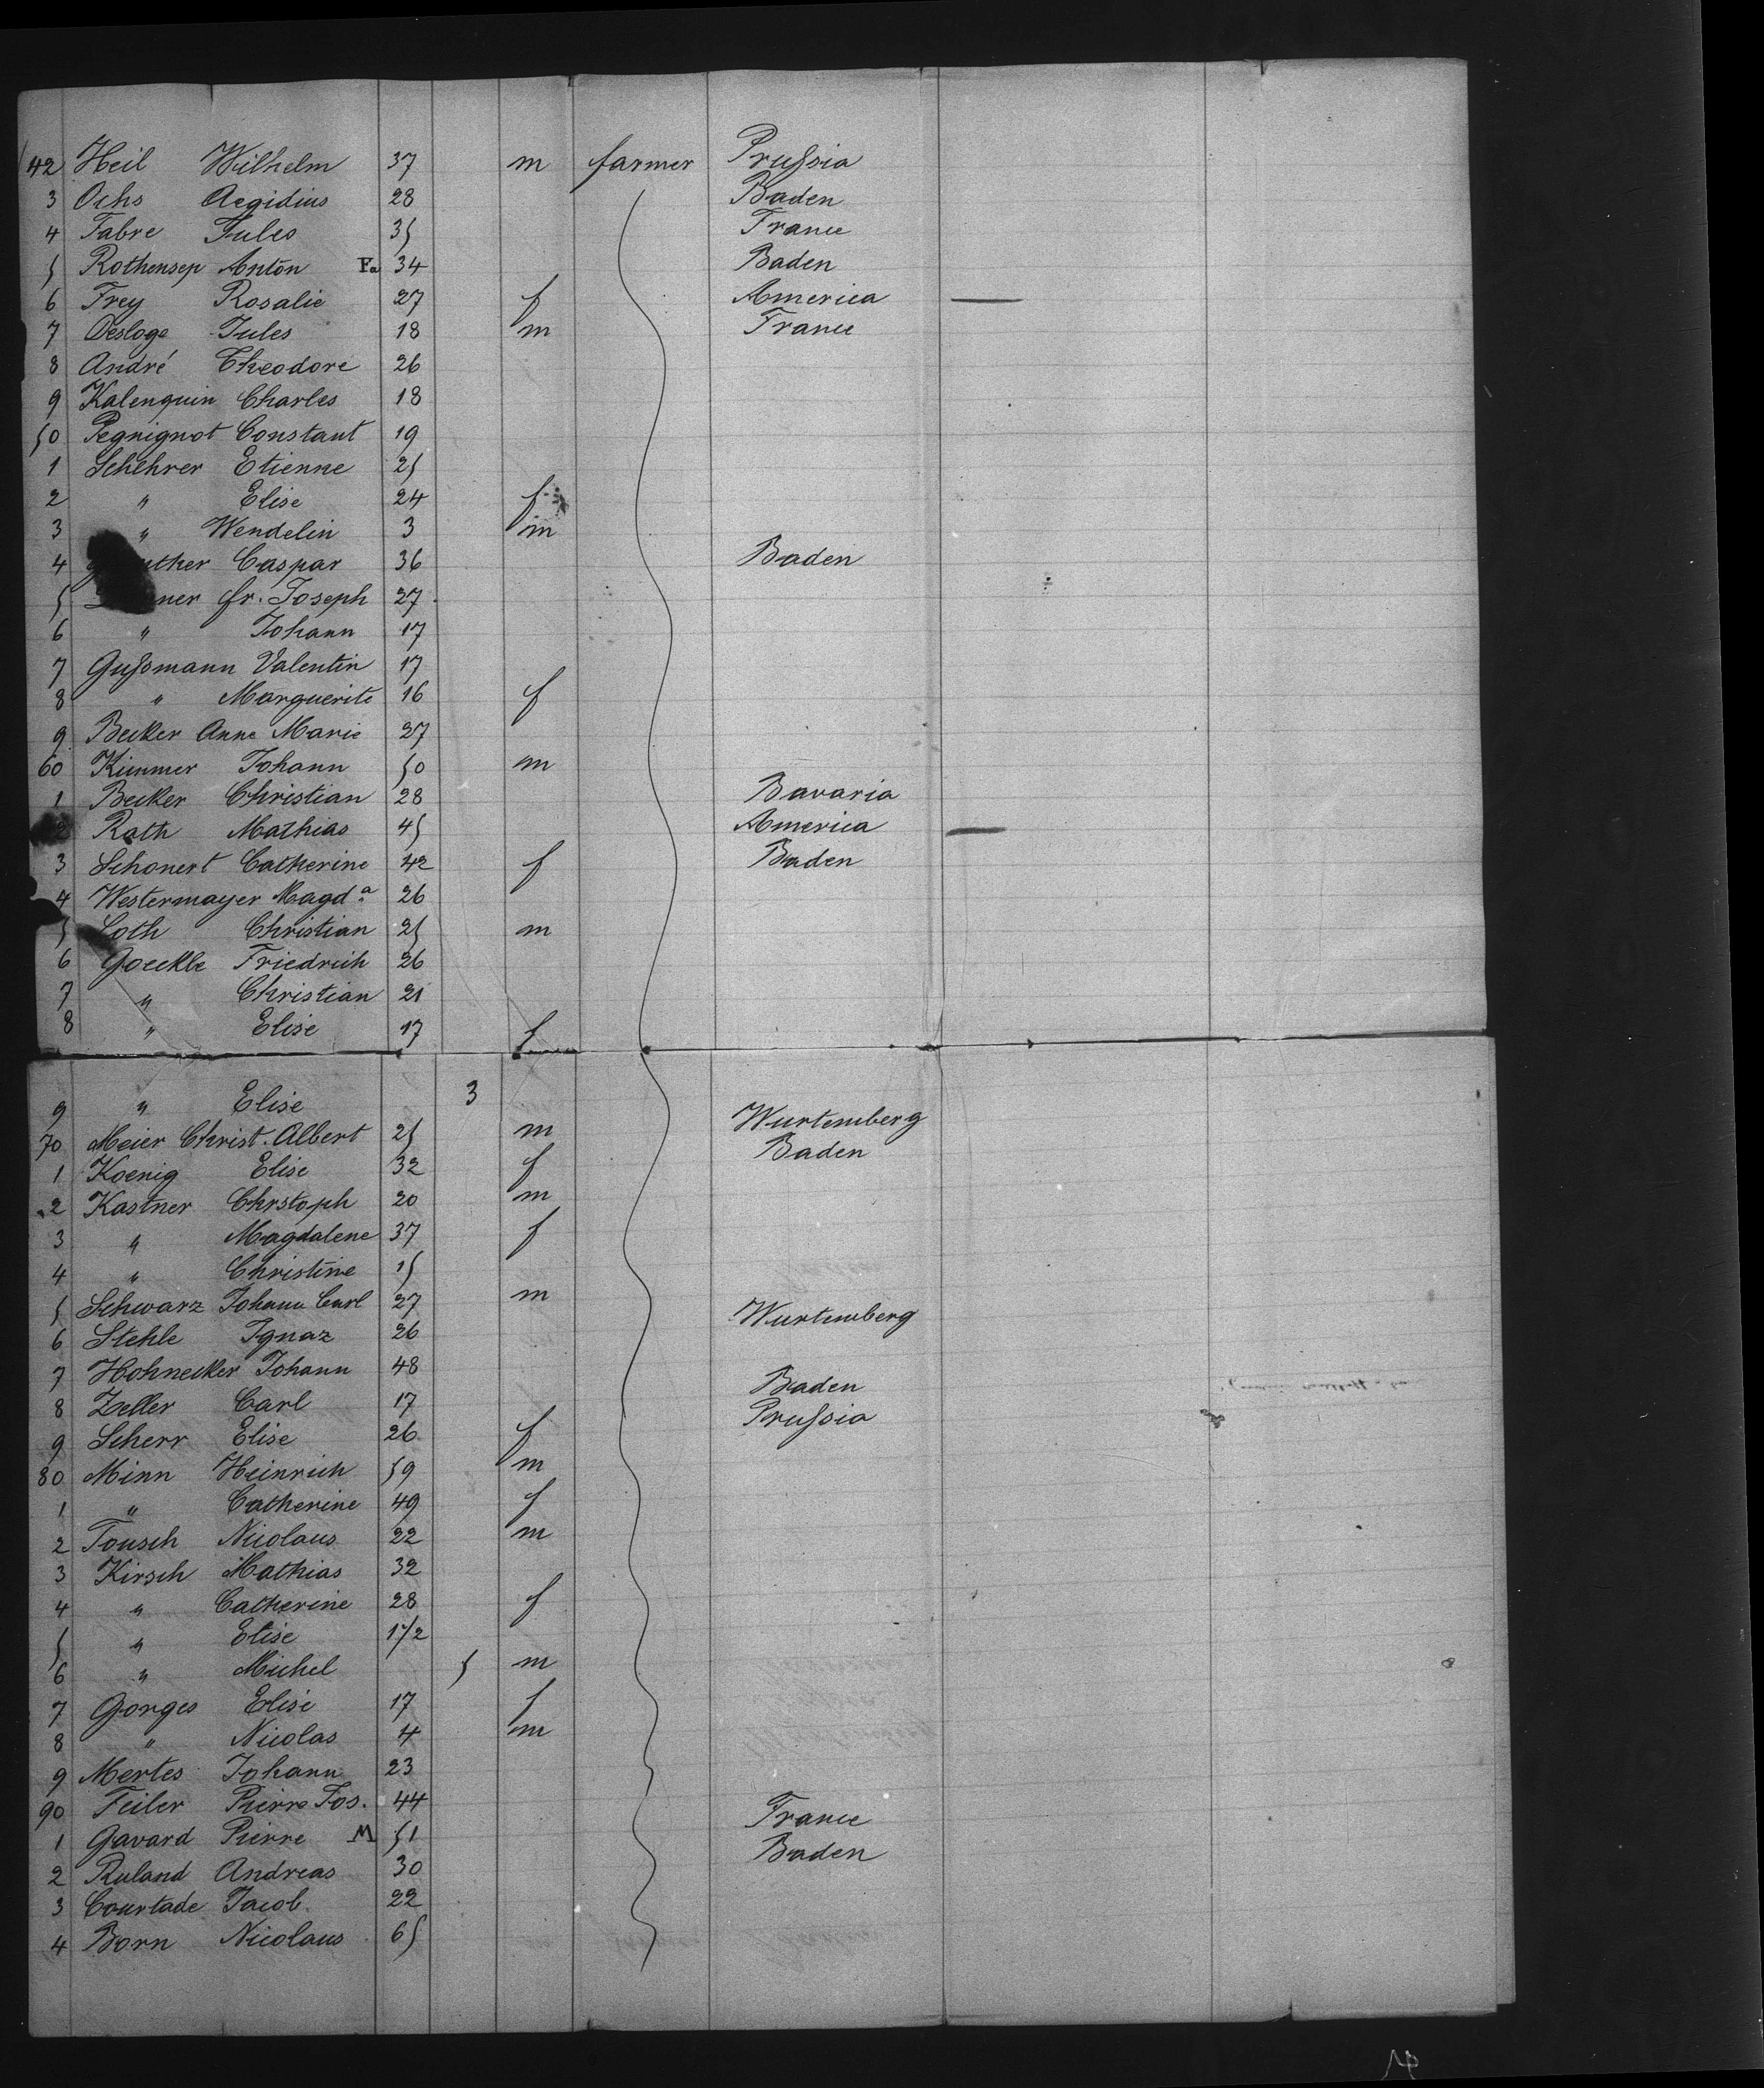 42 Heil Wilhelm 37 m farmer Prussia
3 Ochs Aegidius 28 Baden
4 Fabre Jules 35 France
5 Rothensep Anton Fa 34 Baden
6 Frey Rosalie 27 f America —
7 Desloge Jules 18 m France
8 André Theodore 26
9 Kalenquin Charles 18
50 Pegnignot Constant 19
1 Schehrer Etienne 25
2 " Elise 24 f
3 " Wendelin 3 m
4 Caspar 36 Baden
5 fr. Joseph 27
6 " Johann 17
7 Gussmann Valentin 17
8 " Marguerite 16 f
9 Becker Anne Marie 27
60 Kimmer Johann 50 m
1 Becker Christian 28 Bavaria
2 Rath Mathias 45 America —
3 Schonert Catherine 42 f Baden
4 Westermayer Magda 26
5 Loth Christian 25 m
6 Goeckle Friedrich 26
7 " Christian 21
8 " Elise 17 f
9 " Elise 3
70 Meier Christ. Albert 25 m Wurtemberg
1 Koenig Elise 32 f Baden
2 Kastner Chrstoph 20 m
3 " Magdalene 37 f
4 " Christine 15
5 Schwarz Johann Carl 27 m
6 Stehle Ignaz 26 Wurtemberg
7 Hohnecker Johann 48
8 Zeller Carl 17 Baden
9 Scherr Elise 26 f Prussia
80 Minn Heinrich 59 m
1 " Catherine 49 f
2 Tousch Nicolaus 22 m
3 Kirsch Mathias 32
4 " Catherine 28 f
5 " Elise 1 1/2
6 " Michel 5 m
7 Gorges Elise 17 f
8 " Nicolas 4 m
9 Mertes Johann 23
90 Feiler Pierre Jos. 44
1 Gavard Pierre M 51 France
2 Ruland Andreas 30 Baden
3 Courtade Jacob. 22
4 Born Nicolaus 65